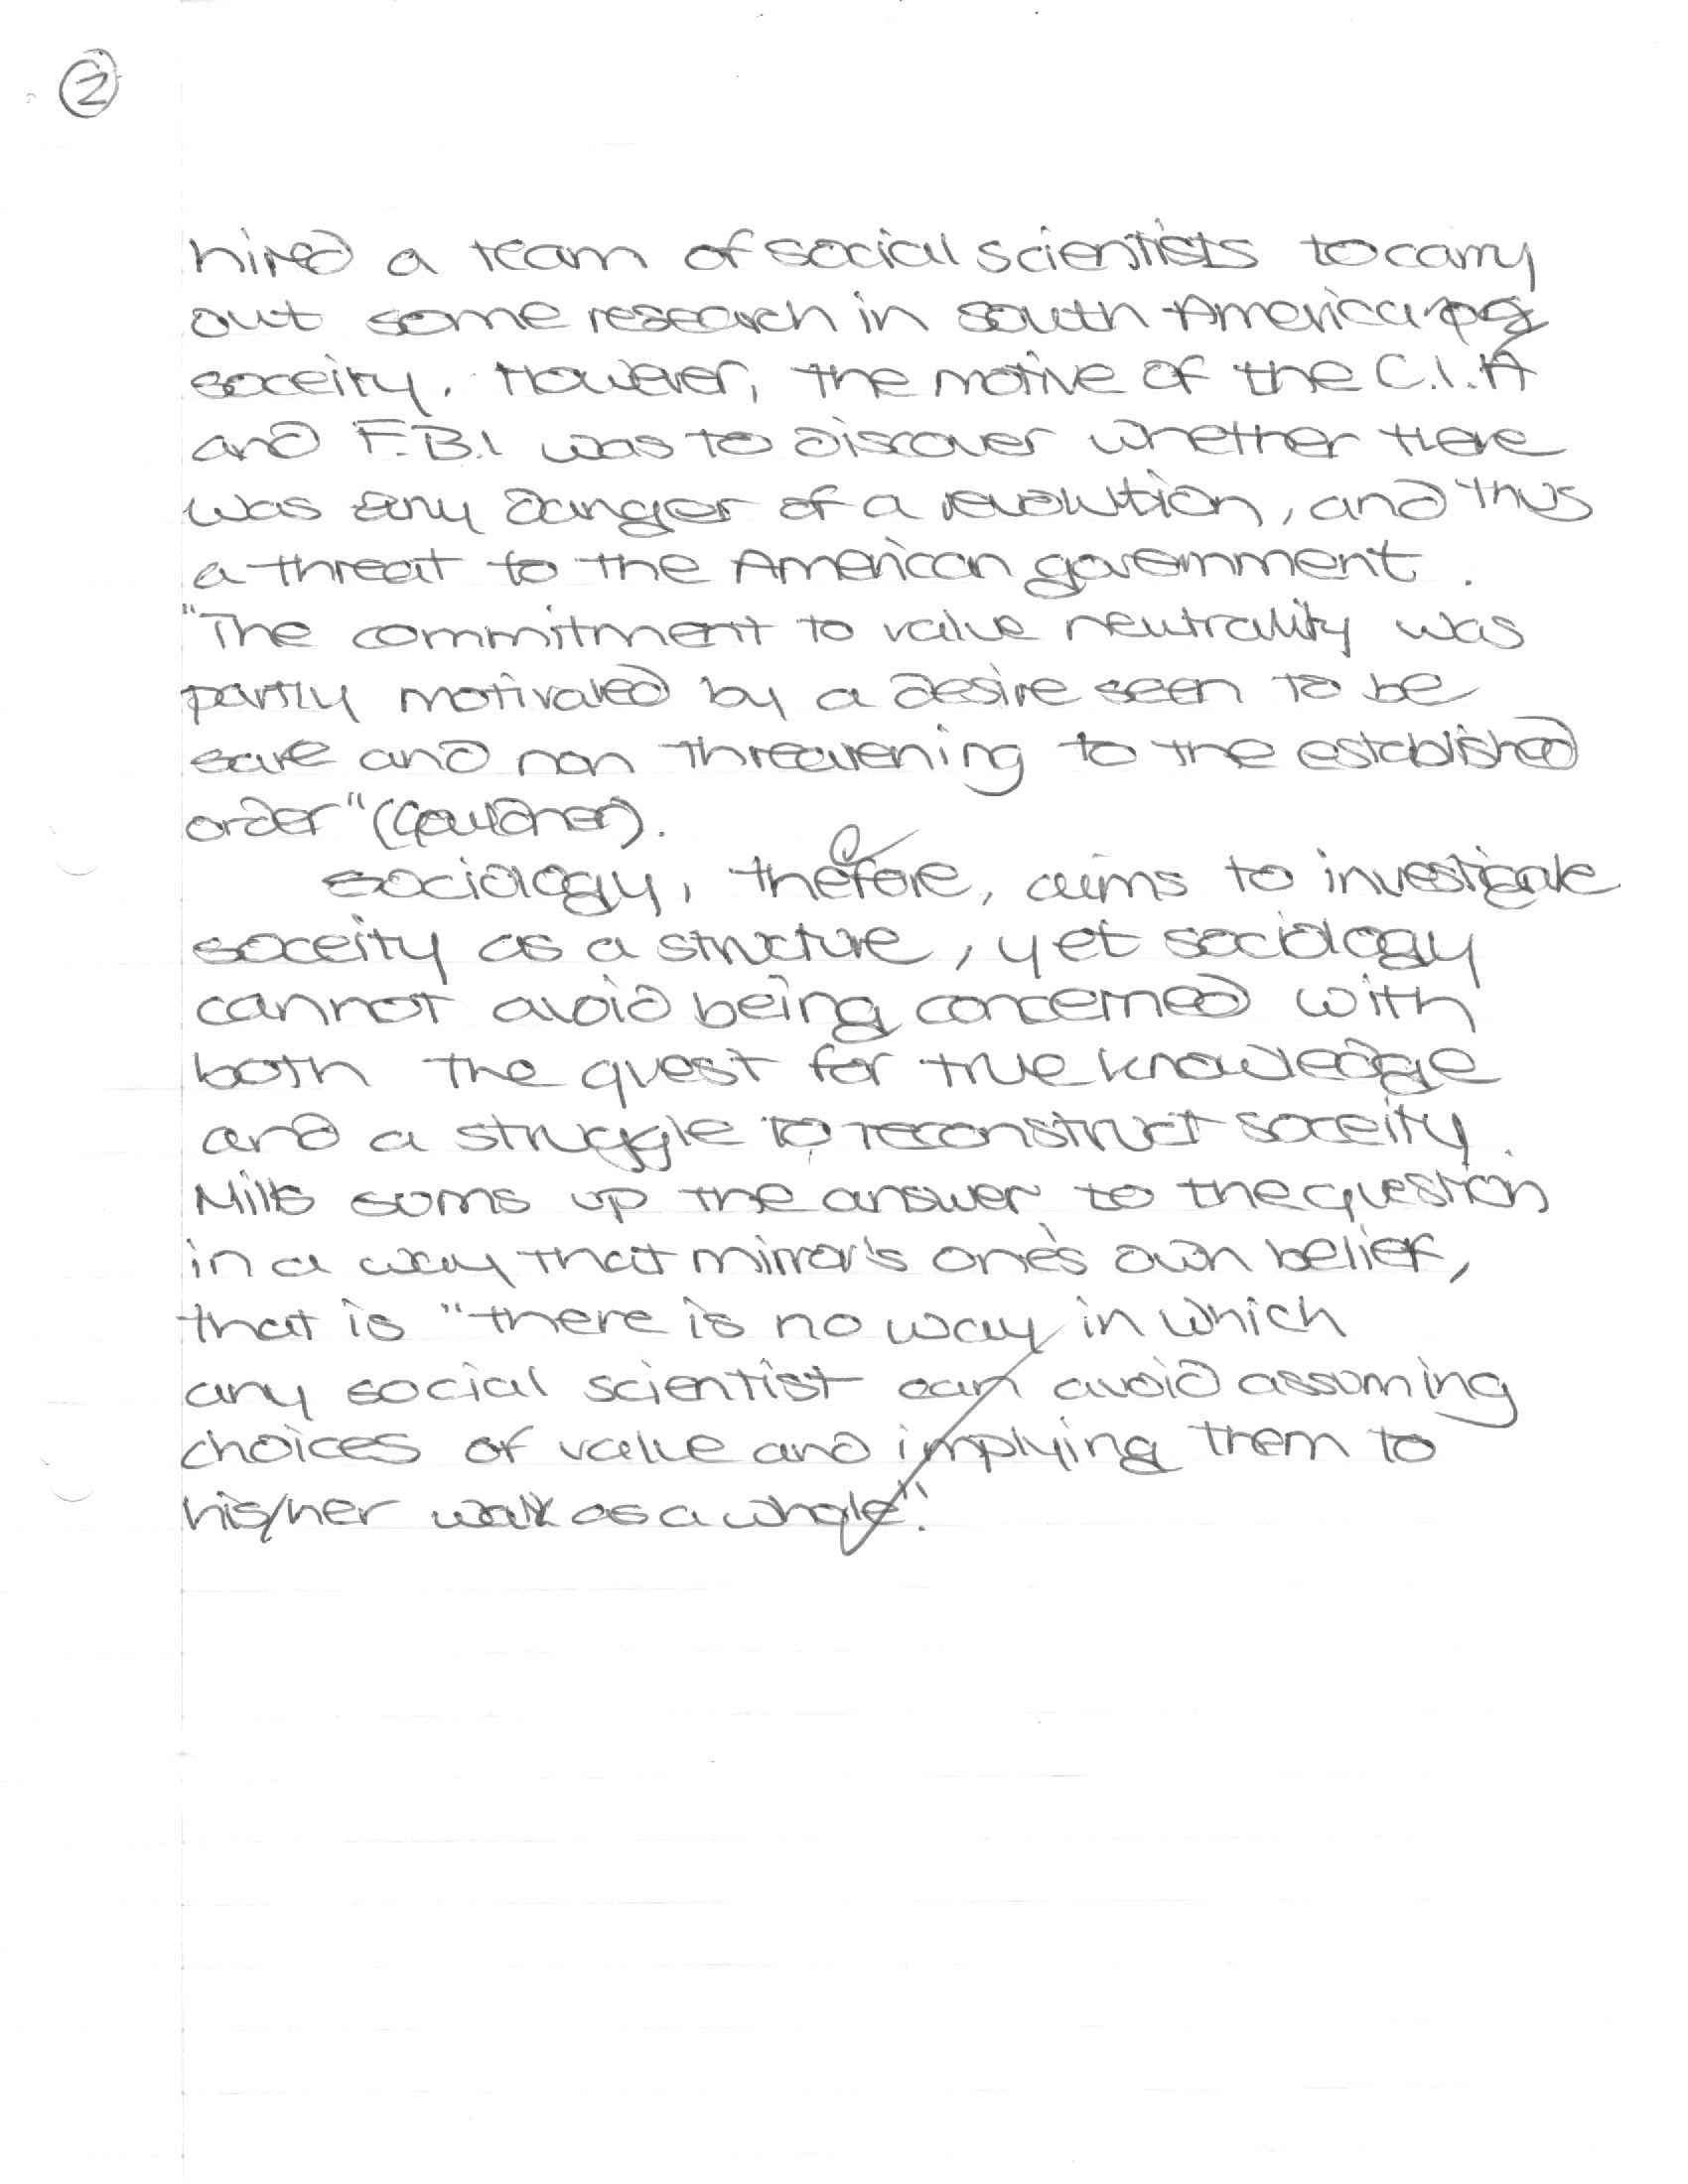 2
hired a team of social scientists to carry
out some research in South American
soceity. However, the motive of the C.I.A
and F.B.I was to discover whether there
was any danger of a revolution, and thus
a threat to the American government.
"The commitment to value neutrality was
partly motivated by a desire seen to be
save and non threatening to the established
order" (Gouldner).
Sociology, thefore, aims to investigate
soceity as a structure, yet sociology
cannot avoid being concerned with
both the quest for true knowledge
and a struggle to reconstruct soceity.
Mills sums up the answer to the question
in a way that mirror's one's own belief,
that is "there is no way in which
any social scientist can avoid assuming
choices of value and implying them to
his/her work as a whole".